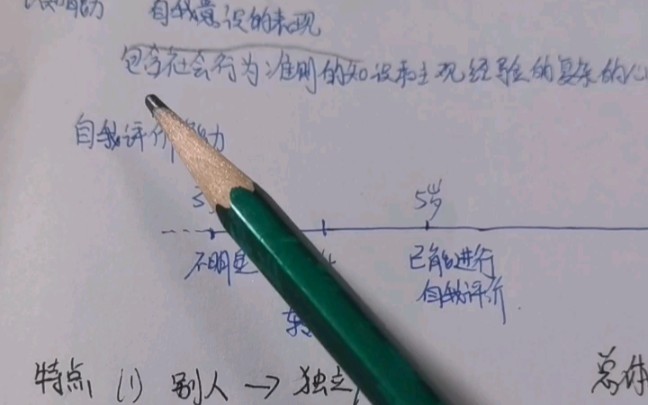 自我意识的表现
包含社会行为准则的知识和主观经验的复杂的心
自我评价能力
5岁
不明显 已能进行
自我评价.
特点 (1) 别人 → 独立 总体